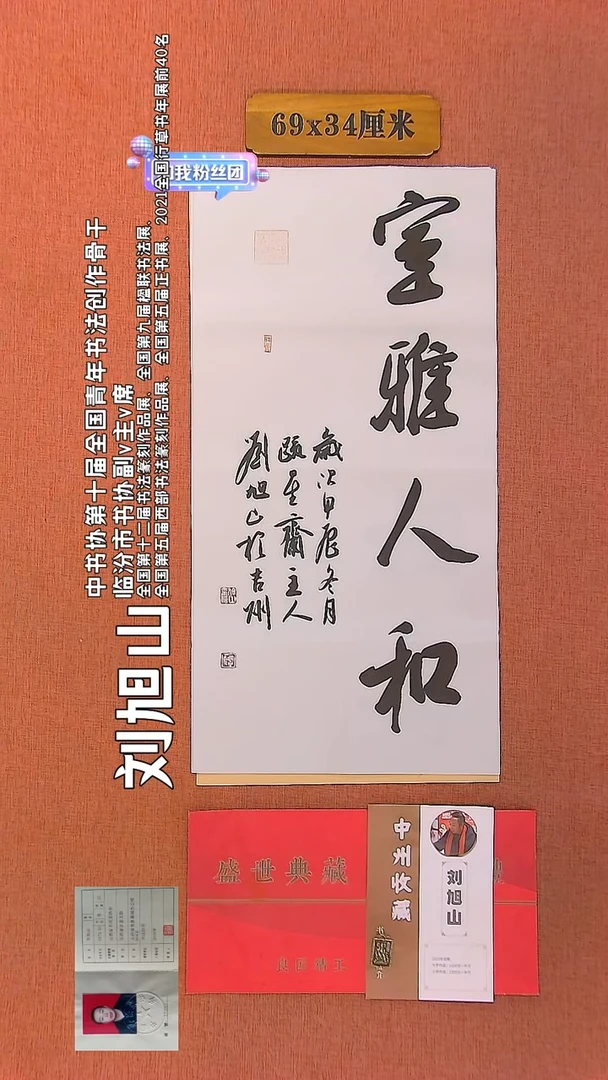 69x34厘米
我粉丝团
室雅人和
歲次甲辰冬月
齋主人
劉旭山於吉州
中书协第十届全国青年书法创作骨干
临汾市书协副v主v席
全国第十二届书法篆刻作品展、全国第九届楹联书法展、
全国第五届西部书法篆刻作品展、全国第五届正书展、2021全国行草书年展前40名
刘旭山
盛世典藏
中州收藏
刘旭山